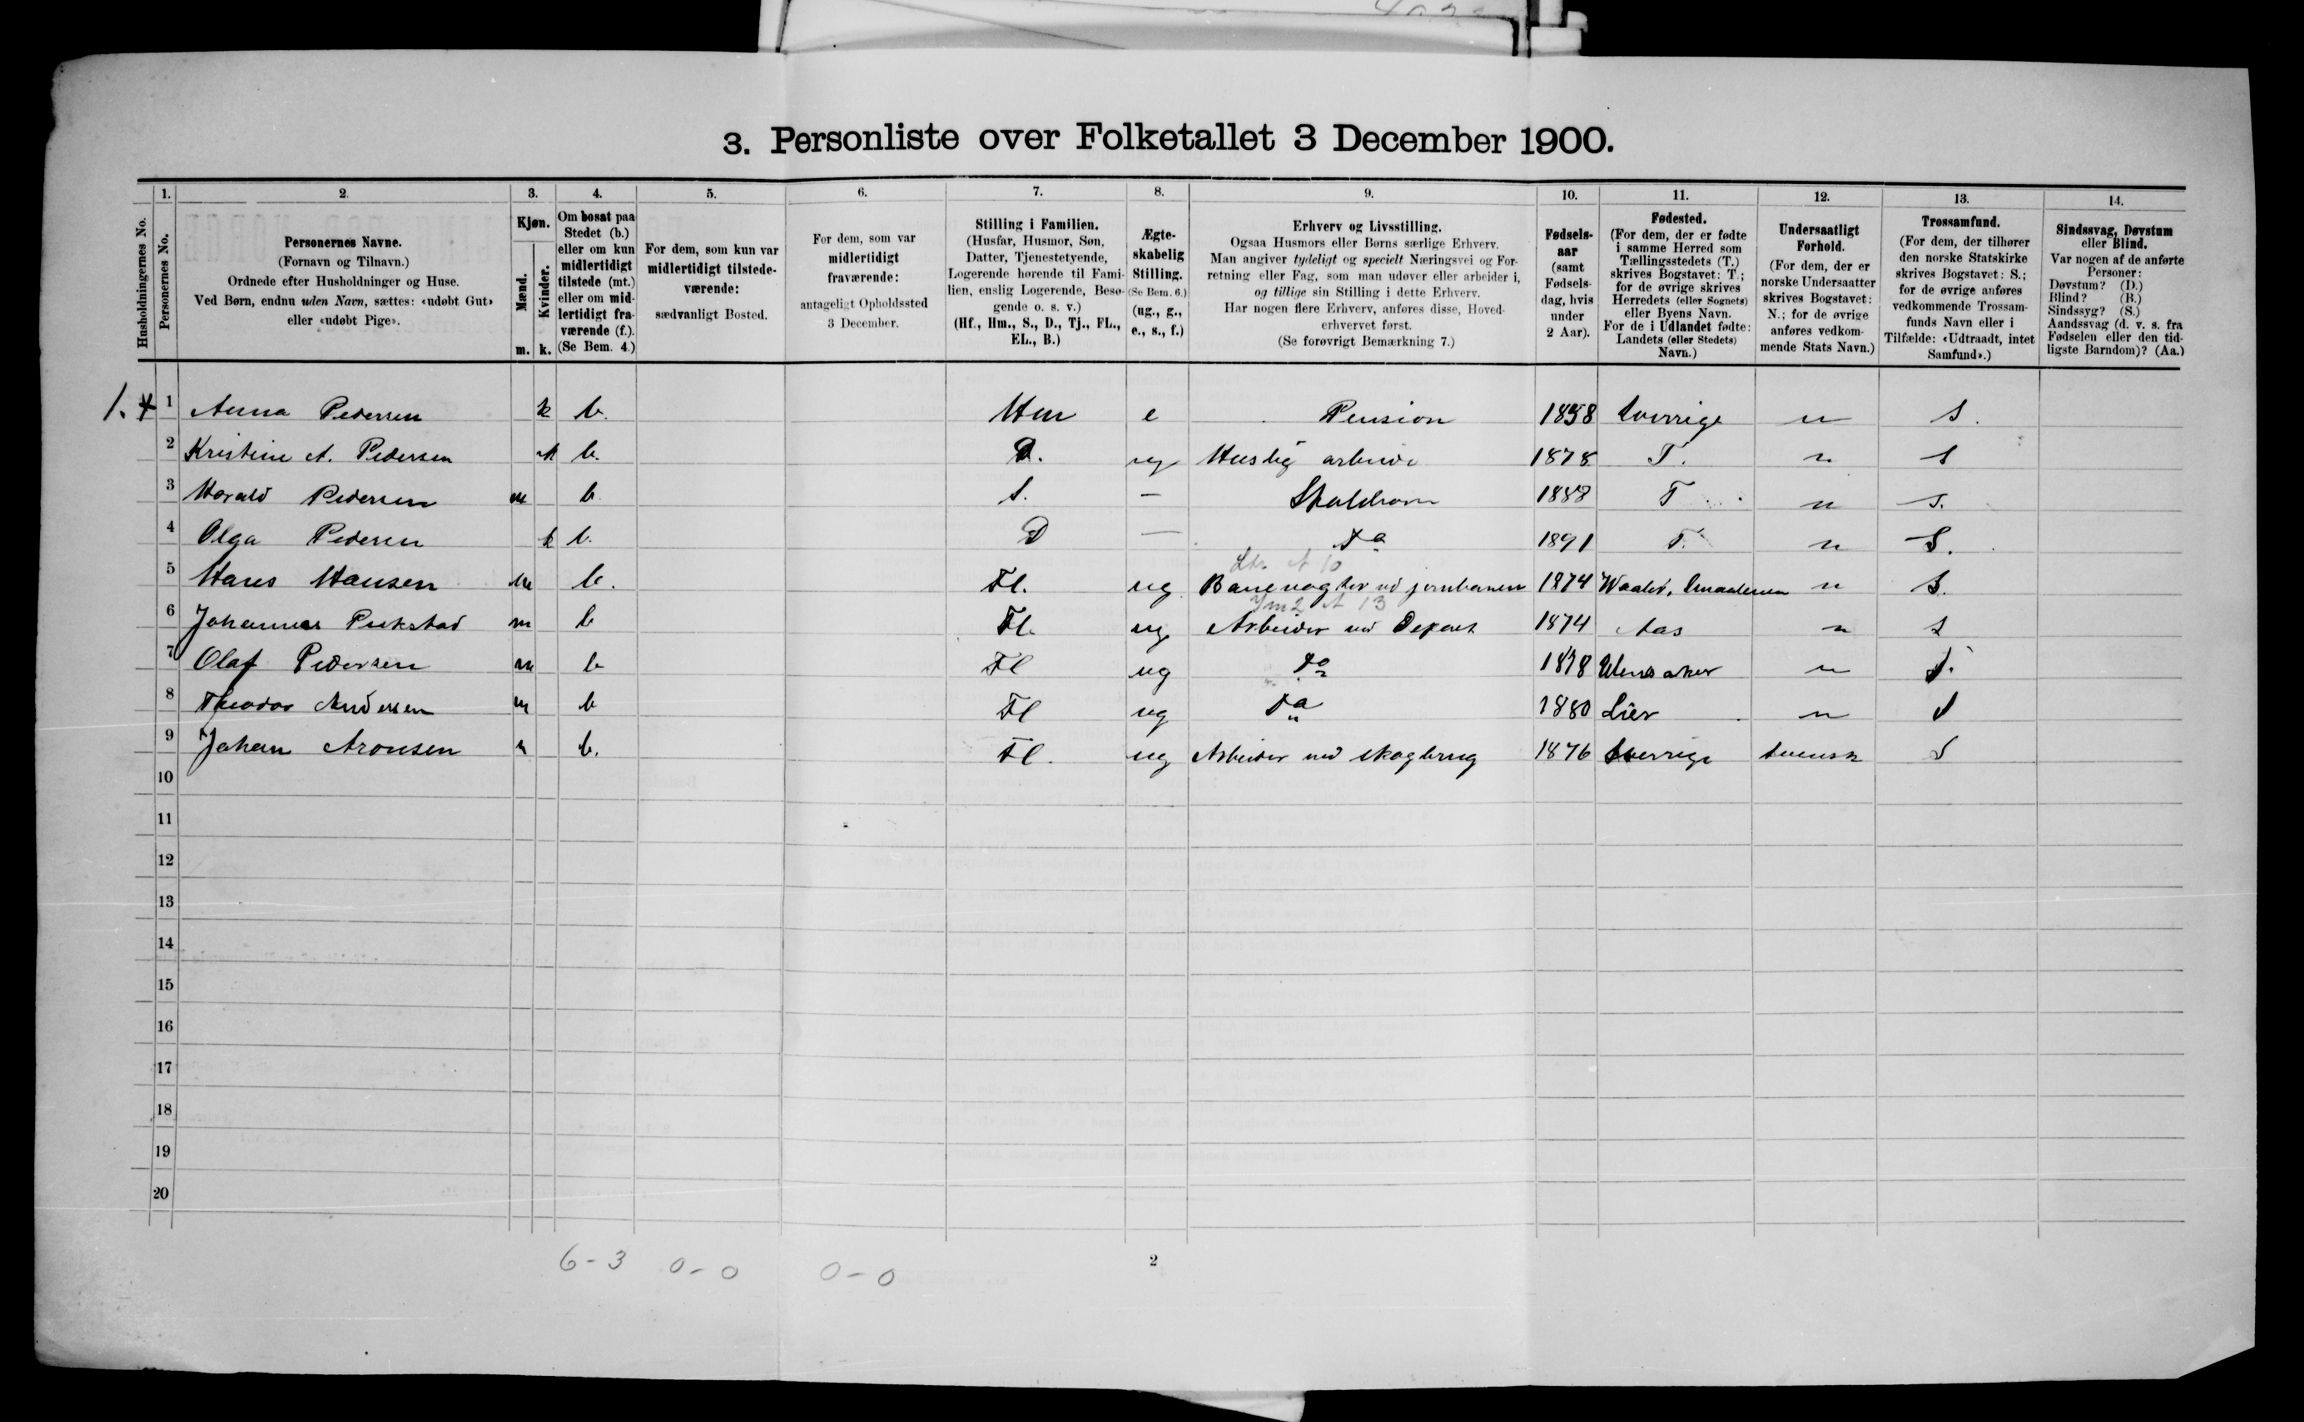 3. Personliste over Folketallet 3 December 1900.
Husholdningernes No.
1.
Personernes No.
2.
Personernes Navne.
(Fornavn og Tilnavn.)
Ordnede efter Husholdninger og Huse.
Ved Børn, endnu uden Navn, sættes: «udøbt Gut»
eller «udøbt Pige».
3.
Kjøn.
Mænd.
Kvinder.
m. k.
4.
Om bosat paa
Stedet (b.)
eller om kun
midlertidigt
tilstede (mt.)
eller om mid-
lertidigt fra-
værende (f.).
(Se Bem. 4.)
5.
For dem, som kun var
midlertidigt tilstede-
værende:
sædvanligt Bosted.
6.
For dem, som var
midlertidigt
fraværende:
antageligt Opholdssted
3 December.
7.
Stilling i Familien.
(Husfar, Husmor, Søn,
Datter, Tjenestetyende,
Logerende hørende til Fami-
lien, enslig Logerende, Besø-
gende o. s. v.)
(Hf., Hm., S., D., Tj., FL.,
EL., B.)
8.
Ægte-
skabelig
Stilling.
(Se Bem. 6.)
(ug., g.,
e., s., f.)
9.
Erhverv og Livsstilling.
Ogsaa Husmors eller Børns særlige Erhverv.
Man angiver tydeligt og specielt Næringsvei og For-
retning eller Fag, som man udøver eller arbeider i,
og tillige sin Stilling i dette Erhverv.
Har nogen flere Erhverv, anføres disse, Hoved-
erhvervet først.
(Se forøvrigt Bemærkning 7.)
10.
Fødsels-
aar
(samt
Fødsels-
dag, hvis
under
2 Aar).
11.
Fødested.
(For dem, der er fødte
i samme Herred som
Tællingsstedets (T.)
skrives Bogstavet: T.;
for de øvrige skrives
Herredets (eller Sognets)
eller Byens Navn.
For de i Udlandet fødte:
Landets (eller Stedets)
Navn.)
12.
Undersaatligt
Forhold.
(For dem, der er
norske Undersaatter
skrives Bogstavet:
N.; for de øvrige
anføres vedkom-
mende Stats Navn.)
13.
Trossamfund.
(For dem, der tilhører
den norske Statskirke
skrives Bogstavet: S.;
for de øvrige anføres
vedkommende Trossam-
funds Navn eller i
Tilfælde: «Udtraadt, intet
Samfund».)
14.
Sindssvag, Døvstum
eller Blind.
Var nogen af de anførte
Personer:
Døvstum? (D.)
Blind? (B.)
Sindssyg? (S.)
Aandssvag (d. v. s. fra
Fødselen eller den tid-
ligste Barndom)? (Aa.)
1. 1 Anna Pedersen k b. Hm e Pension 1858 Sverrige n S.
2 Kristine A. Pedersen k b. D. ug Huslig arbeide 1878 T. n S
3 Harald Pedersen m b. S. — Skolebarn 1888 T n S.
4 Olga Pedersen k b. D — Do 1891 T. n S.
5 Hans Hansen m b. Fl. ug Banevogter ved jernbanen 1874 Waaler, Smaalenene n S.
6 Johannes m b Fl. ug Arbeider ved Depart 1874 Aas n S
7 Olaf Pedersen m b Fl ug Do 1878 Ullensaker n S.
8 Theodor Andersen m b Fl ug Do 1880 Lier n S
9 Johan Aronsen m b. Fl. ug Arbeider ved skogbrug 1876 Sverrige Svensk S
10
11
12
13
14
15
16
17
18
19
20
6-3 0-0 0-0
2